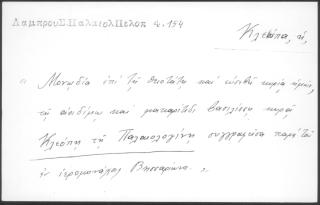 Λαμπρου Σ. Παλαιολ Πελοπ 4. 154
Κλεόπα, ἡ,
" Μονῳδία ἐπὶ τῇ θειοτάτῃ καὶ εὐσεβεῖ κυρίᾳ ἡμῶν,
τῇ ἀοιδίμῳ καὶ μακαρίτιδι βασιλίσσῃ κυρᾷ
Κλεόπῃ τῇ Παλαιολογίνῃ συγγραφεῖσα παρὰ τοῦ
ἐν ἱερομονάχοις Βησσαρίωνος "